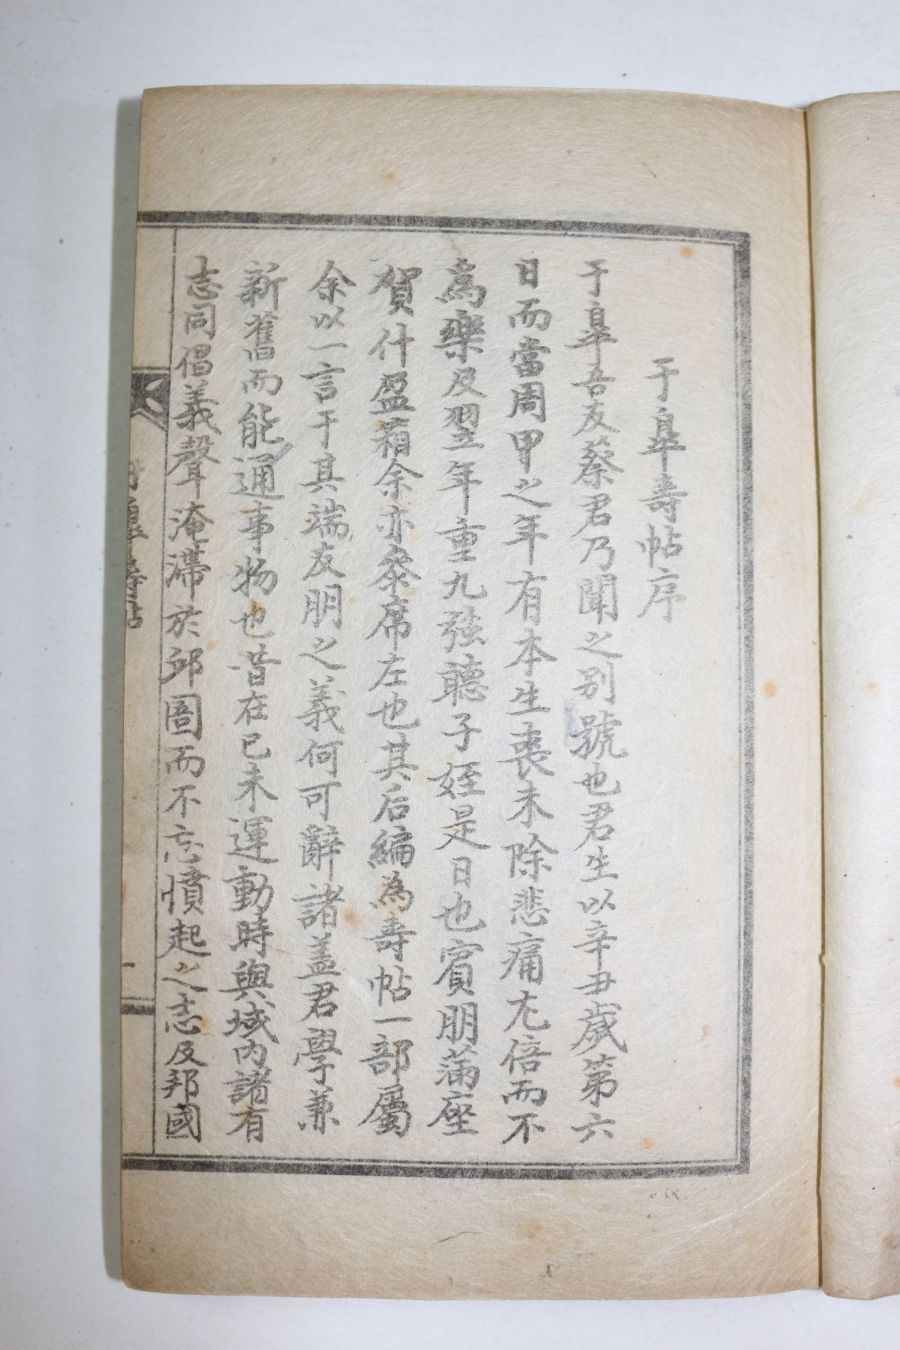 于皐壽帖序
于皐吾友蔡君乃聞之別號也君生以辛丑歲第六
日而當周甲之年有本生喪未除悲痛尤倍而不
爲樂及翌年重九強聽子姪是日也賓朋滿座
賀什盈箱余亦叅席左也其后編為壽帖一部屬
余以一言于其端友朋之義何可辭諸盖君學兼
新舊而能通事物也昔在己未運動時與域內諸有
志同倡義聲淹滯於邱圄而不忘憤起之志及邦國
壽帖
一